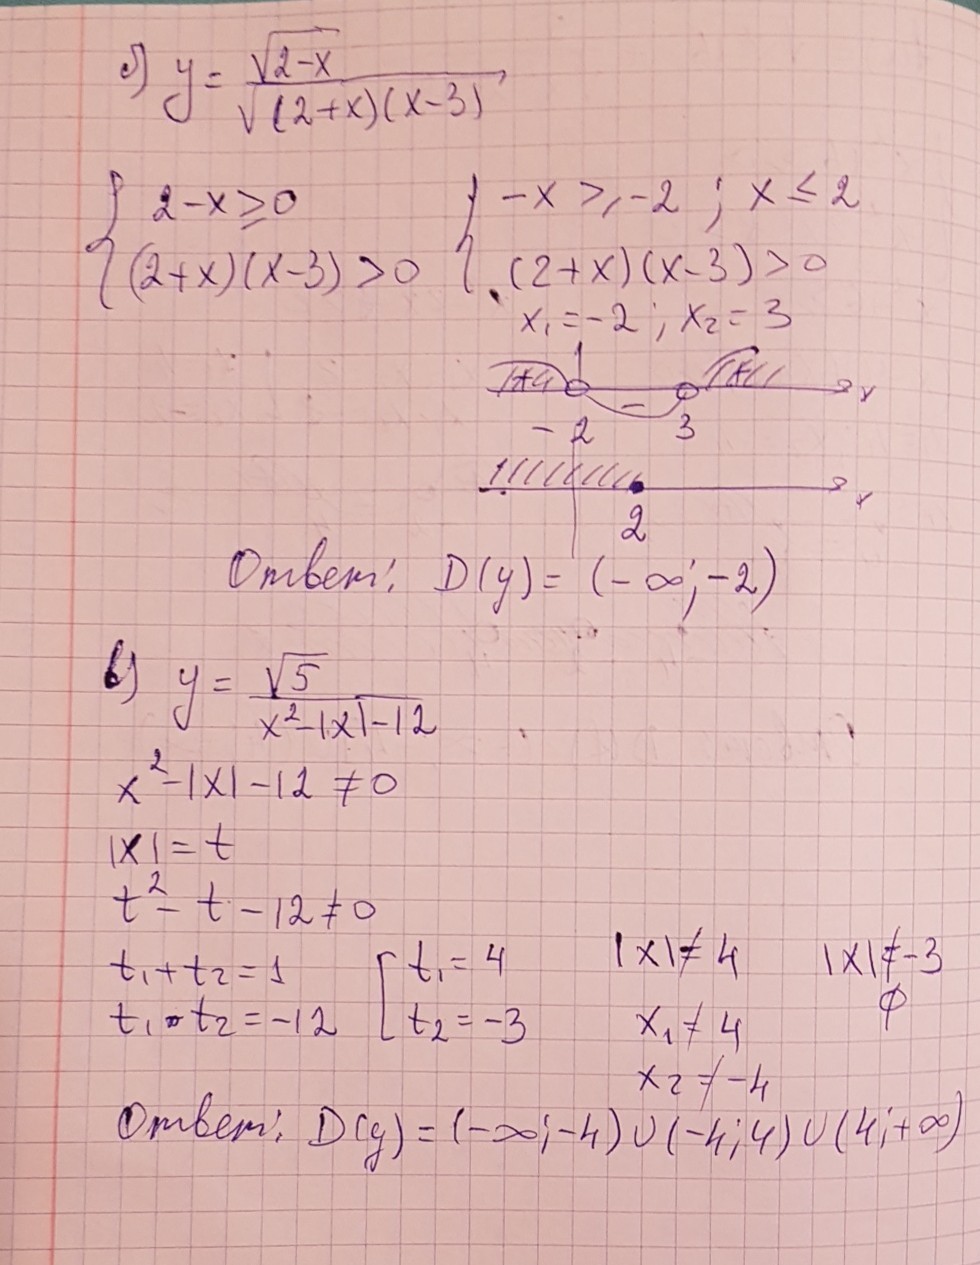 б) y = √(2-x) / √((2+x)(x-3)) ,
{ 2-x ≥ 0 { -x ≥ -2 ; x ≤ 2
{ (2+x)(x-3) > 0 { (2+x)(x-3) > 0
x₁ = -2 ; x₂ = 3
+ - + x
-2 3
x
2
Ответ: D(y) = (-∞; -2)
в) y = √5 / (x²-|x|-12)
x² - |x| - 12 ≠ 0
|x| = t
t² - t - 12 ≠ 0
t₁ + t₂ = 1 [ t₁ = 4 |x| ≠ 4 |x| ≠ -3
t₁ • t₂ = -12 [ t₂ = -3 x₁ ≠ 4 ∅
x₂ ≠ -4
Ответ: D(y) = (-∞; -4) ∪ (-4; 4) ∪ (4; +∞)